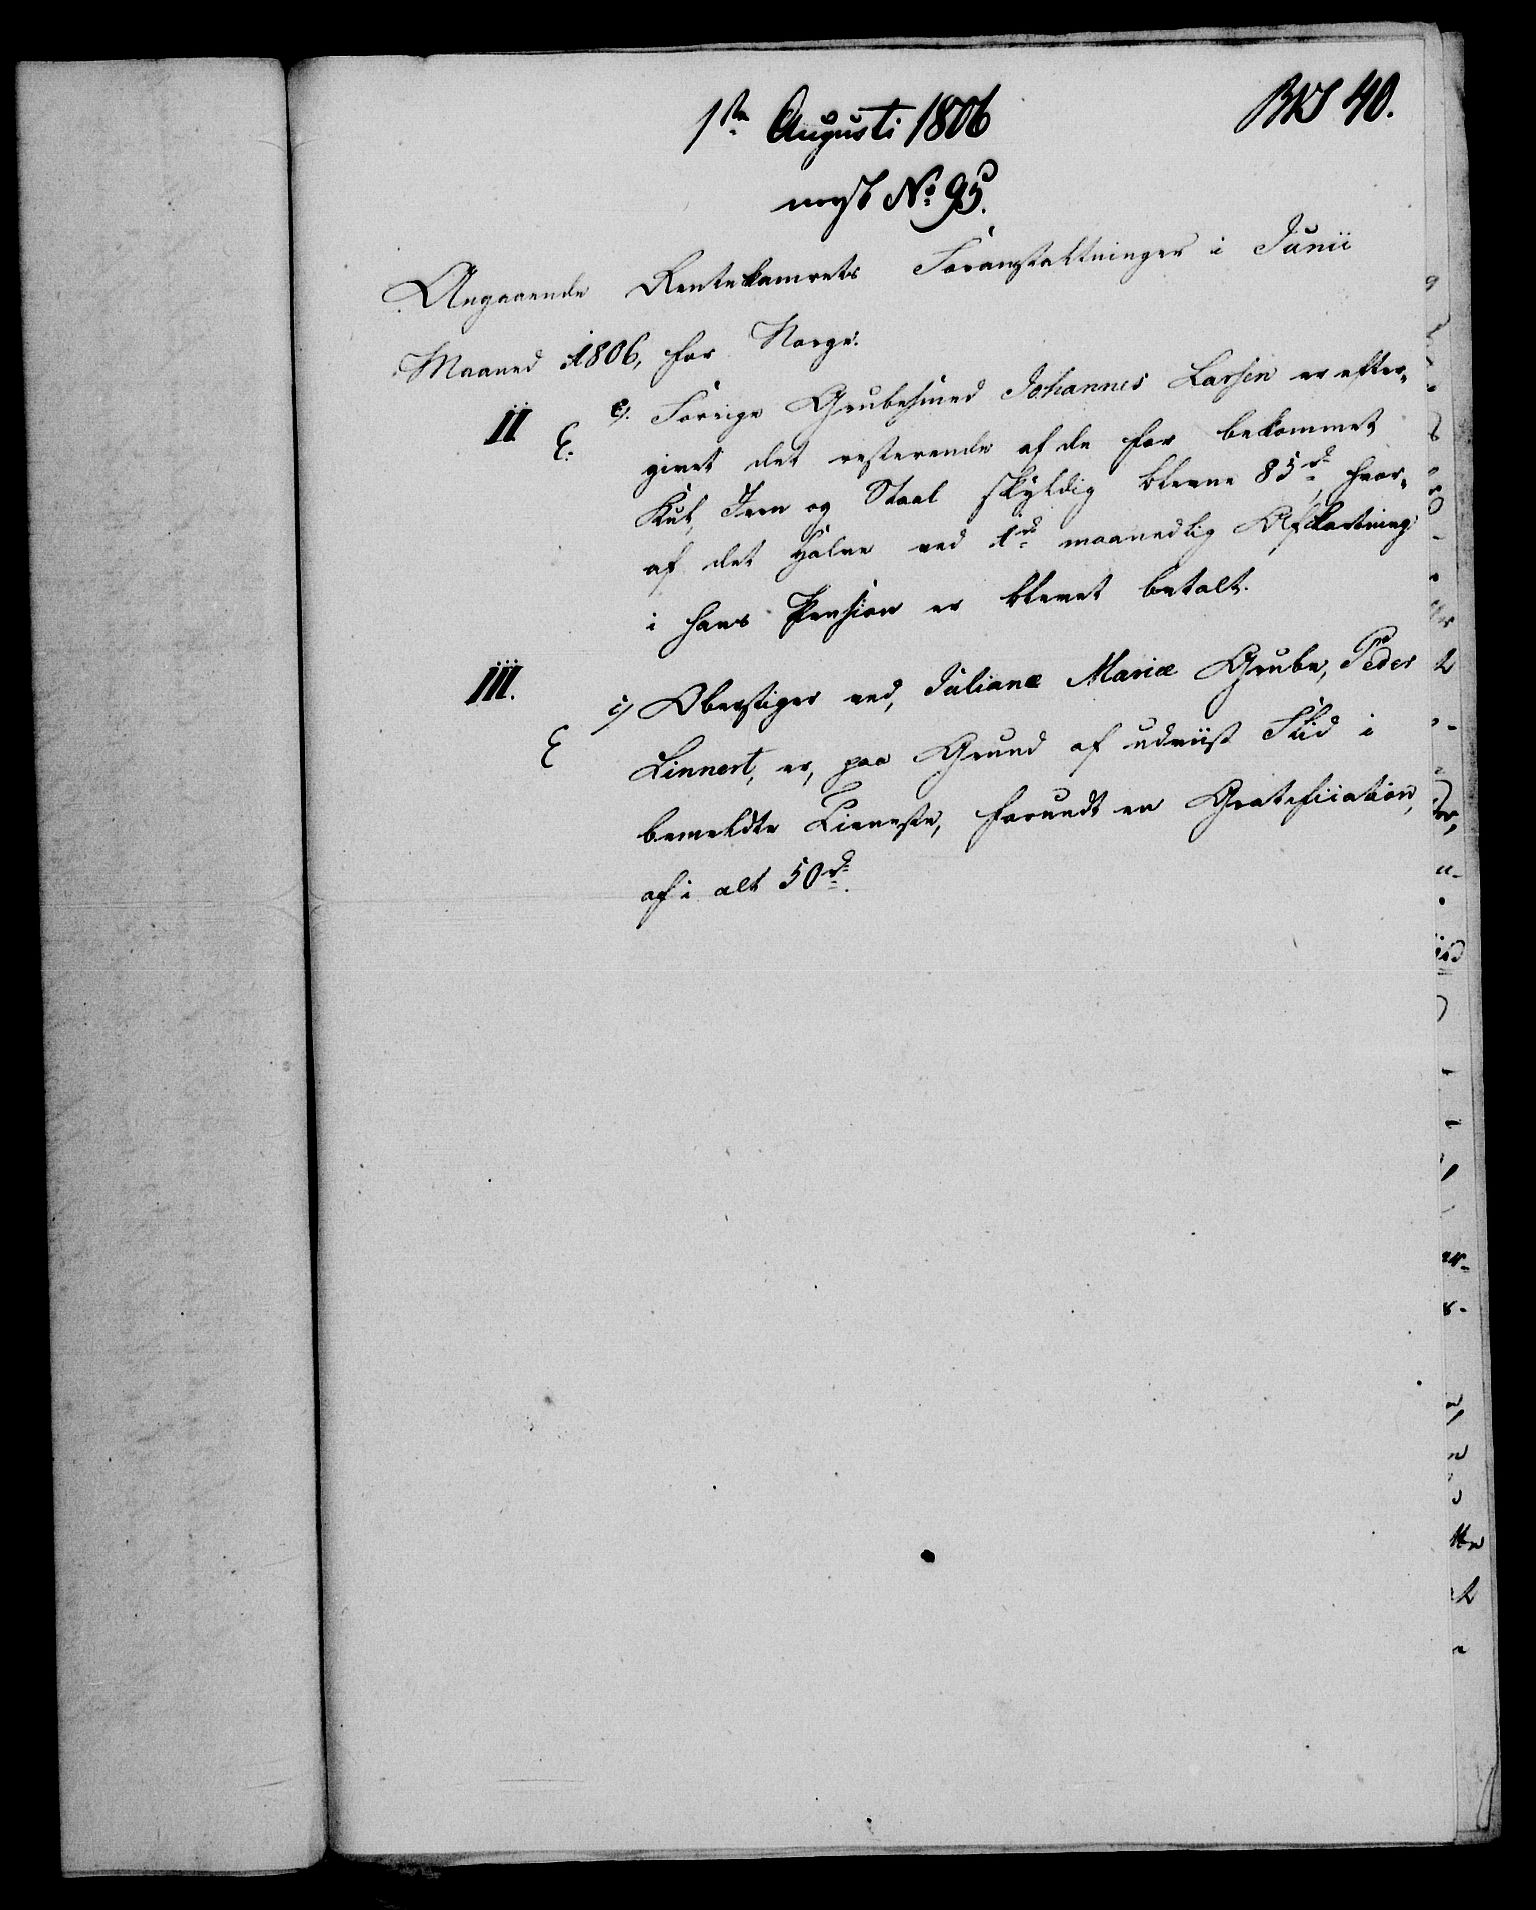 1ste Augusti 1806
RKS 40.
No: 95.
Angaaende Rentekamrets Foranstaltninger i Junii
Maaned 1806, for Norge.
II
E.
c). Forrige Grubesmed Johannes Larsen er efter-
givet det resterende af de for bekommet
Kul, Jern og Staal skyldig blevne 85rd, hvor-
af det halve ved 1rd maanedlig Afkortning
i hans Pension er blevet betalt.
III.
E
c) Oberstiger ved, Julianæ Mariæ Grube, Peder
Linnert, er, paa Grund af udviist Flid i
bemeldte Tieneste, forundt en Gratification,
af i alt 50rd.